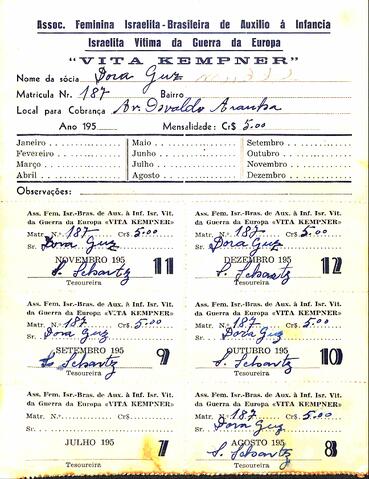 Assoc. Feminina Israelita-Brasileira de Auxilio á Infancia
Israelita Vitima da Guerra da Europa
"VITA KEMPNER"
Nome da sócia Dora Guz
Matricula Nr. 187 Bairro
Local para Cobrança Av. Osvaldo Aranha
Ano 195 Mensalidade: Cr$ 5.00
Janeiro Maio Setembro
Fevereiro Junho Outubro
Março Julho Novembro
Abril Agosto Dezembro
Observações:
Ass. Fem. Isr.-Bras. de Aux. à Inf. Isr. Vit.
da Guerra da Europa «VITA KEMPNER»
Matr. N.º 187 Cr$. 5.00
Sr. Dora Guz
NOVEMBRO 195 11
S. Schartz
Tesoureira
Ass. Fem. Isr-Bras. de Aux. à Inf. Isr. Vit.
da Guerra da Europa «VITA KEMPNER»
Matr. N.º 187 Cr$. 5.00
Sr. Dora Guz
DEZEMBRO 195 12
S. Schartz
Tesoureira
Ass. Fem. Isr-Bras. de Aux. à Inf. Isr. Vit.
da Guerra da Europa «VITA KEMPNER»
Matr. N.º 187 Cr$. 5.00
Sr. Dora Guz
SETEMBRO 195 9
S. Schartz
Tesoureira
Ass. Fem. Isr-Bras. de Aux. à Inf. Isr. Vit.
da Guerra da Europa «VITA KEMPNER»
Matr. N.º 187 Cr$. 5.00
Sr. Dora Guz
OUTUBRO 195 10
S. Schartz
Tesoureira
Ass. Fem. Isr-Bras. de Aux. à Inf. Isr. Vit.
da Guerra da Europa «VITA KEMPNER»
Matr. N.º Cr$.
Sr.
JULHO 195 7
Tesoureira
Ass. Fem. Isr-Bras. de Aux. à Inf. Isr. Vit.
da Guerra da Europa «VITA KEMPNER»
Matr. N.º 187 Cr$. 5.00
Sr. Dora Guz
AGOSTO 195 8
S. Schartz
Tesoureira